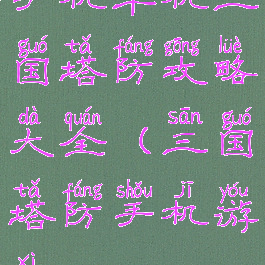 guó tǎ fáng gōng lüè
国塔防攻略
dà quán sān guó
大全（三国
tǎ fáng shǒu jī yóu
塔防手机游
xì